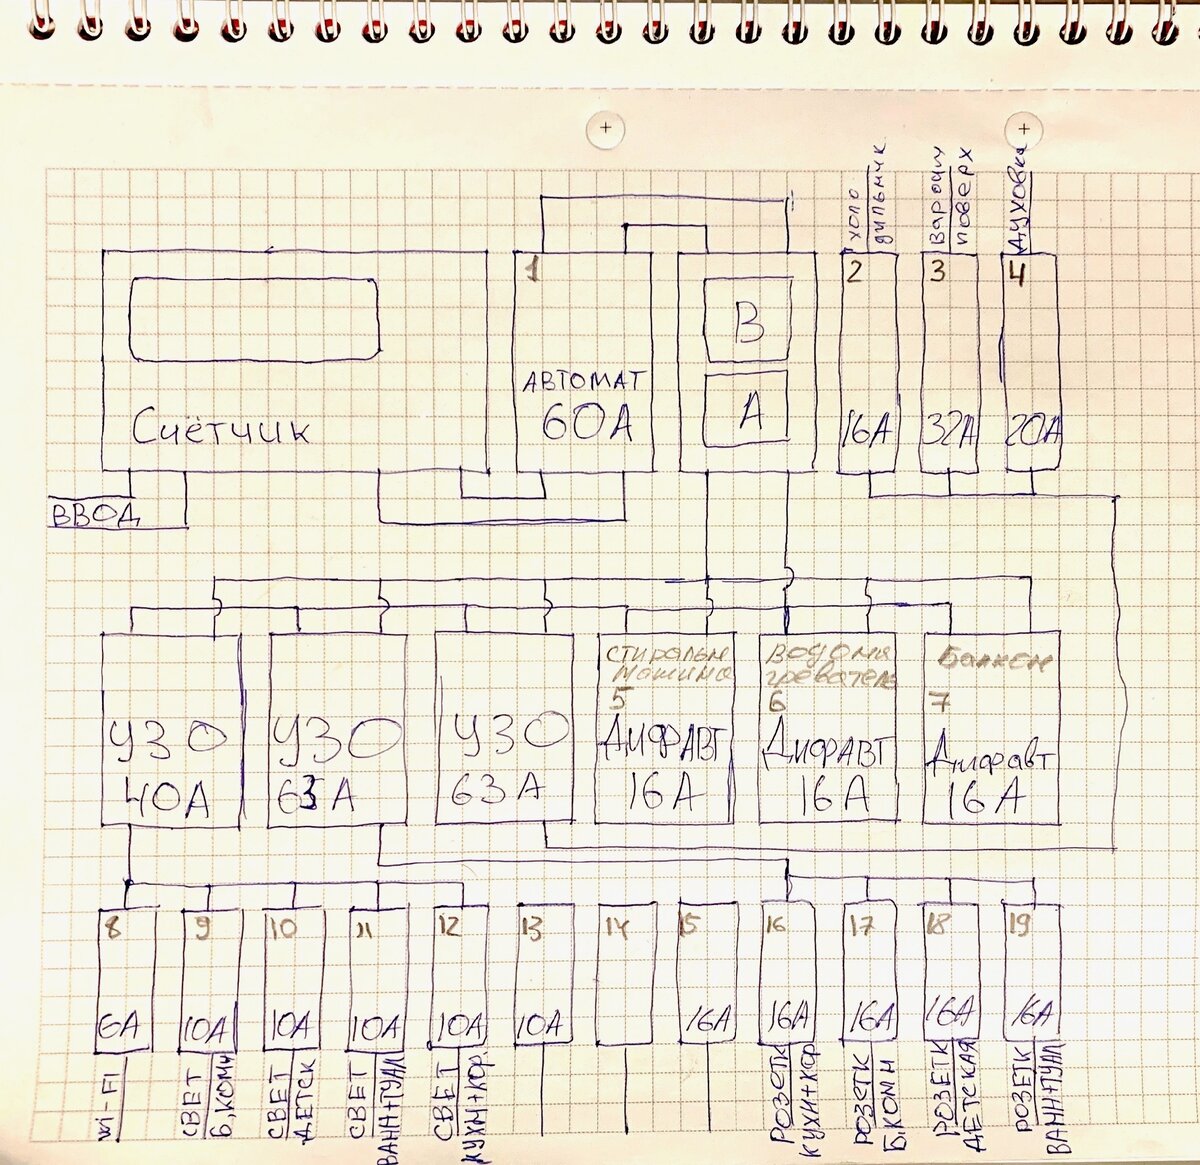 холо
дильник
варочн
поверх
духовка
1
2
3
4
В
А
АВТОМАТ
60А
Счётчик
16А
32А
20А
ВВОД
стиральн
машина
5
водона
греватель
6
Балкон
7
УЗО
40А
УЗО
63А
УЗО
63А
ДИФАВТ
16А
ДИФАВТ
16А
Дифавт
16А
8
9
10
11
12
13
14
15
16
17
18
19
6А
10А
10А
10А
10А
10А
16А
16А
16А
16А
16А
Wi-Fi
СВЕТ
Б,КОМН
СВЕТ
ДЕТСК
СВЕТ
ВАНН+ТУАЛ
СВЕТ
КУХН+КОР.
РОЗЕТК
КУХН+КОР
РОЗЕТК
Б.КОМН
РОЗЕТК
ДЕТСКАЯ
РОЗЕТК
ВАНН+ТУАЛ